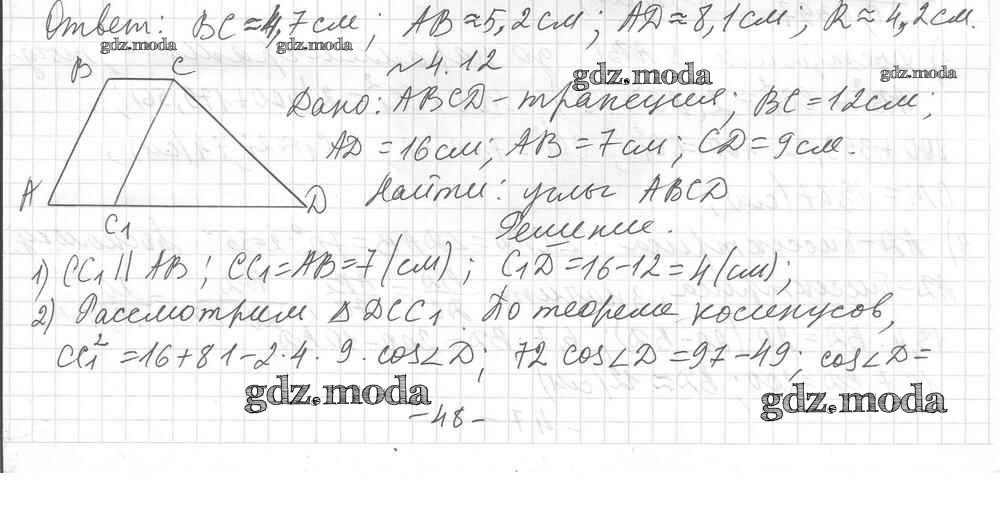 Ответ: BC ≈ 4,7 см; AB ≈ 5,2 см; AD ≈ 8,1 см; R ≈ 4,2 см.
gdz.moda gdz.moda
B C ~ 4.12
gdz.moda gdz.moda
Дано: ABCD - трапеция; BC = 12 см;
AD = 16 см; AB = 7 см; CD = 9 см.
A D Найти: углы ABCD
C1 Решение.
1) CC1 || AB; CC1 = AB = 7 (см); C1D = 16 - 12 = 4 (см);
2) Рассмотрим Δ DCC1. По теореме косинусов,
CC1² = 16 + 81 - 2 · 4 · 9 · cos∠D; 72 cos∠D = 97 - 49; cos∠D =
gdz.moda gdz.moda
- 48 -